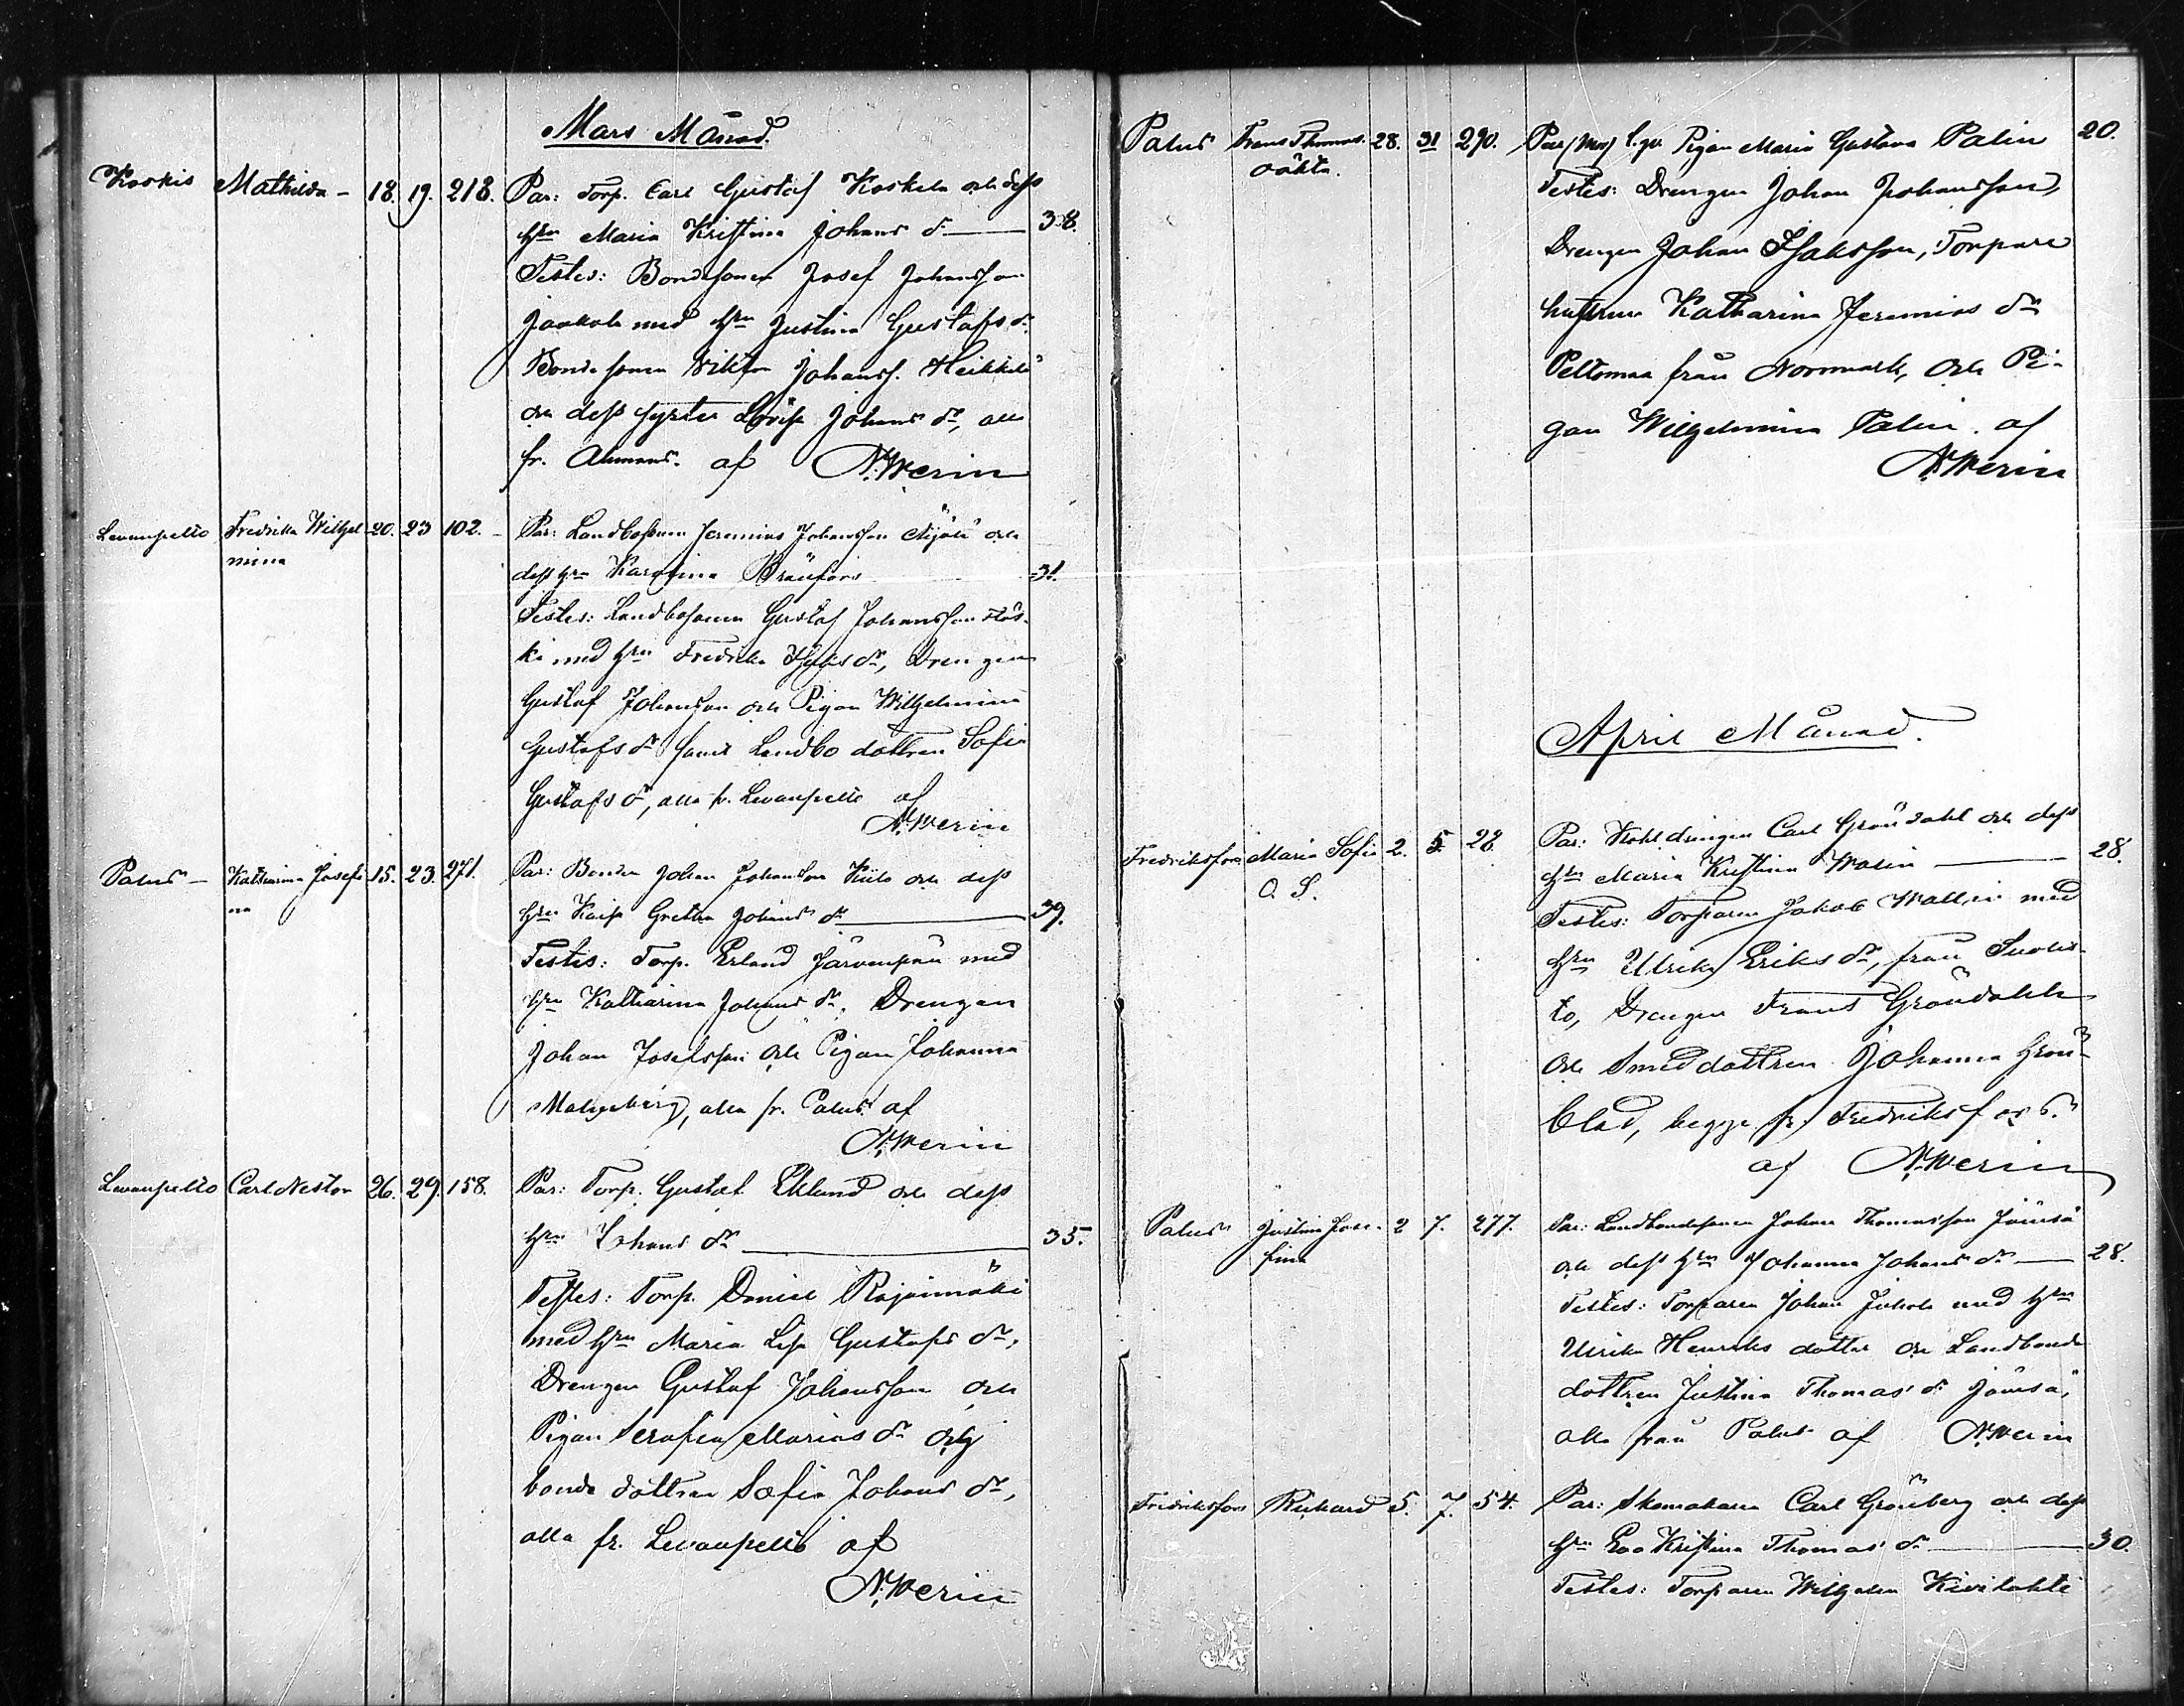 Mars Månad.
Koskis Mathilda - 18. 19. 213. Par: Torp. Carl Gustaf Koskela och dess
hru Maria Kristina Johans dr 38.
Testes: Bondesonen Josef Johansson
Jaakola med hru Justina Gustafs dr
Bondesonen Viktor Johanss. Heikkilä
och dess syster Lovisa Johans dr, alla
fr. af N. Werin
Levanpelto Fredrika Wilhel 20. 23 102. Par: Landbosonen Jeremias Johansson och
mina dess hru Karolina 31.
Testes: Landbosonen Gustaf Johansson
ki med hru Fredrika dr, Drengen
Gustaf Johansson och Pigan Wilhelmina
Gustafs dr samt Landbo dottren Sofia
Gustafs dr, alla fr. Levanpelto af
N. Werin
Palus - Katharina Josefi 15. 23. 271. Par: Bonden Johan Johansson och dess
na hru Kaisa Greta Johans dr 39.
Testes: Torp. Erland Järvenpää med
hru Katharina Johans dr, Drengen
Johan Josefsson och Pigan Johanna
Malmberg, alla fr. Palus af
N. Werin
Levanpelto Carl Nestor 26. 29. 158. Par: Torp. Gustaf Eklund och dess
hru Johans dr 35.
Testes: Torp. Daniel Rajainmäki
med hru Maria Lisa Gustafs dr,
Drengen Gustaf Johansson och
Pigan Serafia Marias dr och
bonde dottren Sofia Johans dr,
alla fr. Levanpelto af
N. Werin
Palus Frans Thomas 28. 31 290. Par (Mor) l. qv. Pigan Maria Gustava Palin 20.
oäkta. Testes: Drengen Johan Johansson,
Drengen Johan Isaksson, Torpare
hustrun Katharina Jeremias dr
Peltomaa från Norrmark, och Pi-
gan Wilhelmina Palin. af
N. Werin
April Månad.
Fredriksfors Maria Sofia 2. 5. 28. Par: Kohldrengen Carl Gröndahl och dess
O. S. hru Maria Kristina Walin 28.
Testes: Torparen Jakob Wallin med
hru Ulrika Eriks dr, från Suolis-
to, Drengen Frans Gröndahl
och Smeddottren Johanna Grön-
blad, begge fr. Fredriksfors.
af N. Werin
Palus Justina Jose- 2 7. 277. Par: Landbondesonen Johan Thomasson Jämsä
fina och dess hru Johanna Johans dr 28.
Testes: Torparen Johan med hru
Ulrika Henriks dotter och Landbonde
dottren Justina Thomas dr Jämsä,
alla från Palus af N. Werin
Fredriksfors Richard 5. 7. 54. Par: Skomakaren Carl Grönberg och dess
hru Eva Kristina Thomas dr 30.
Testes: Torparen Wilhelm Kivilahti